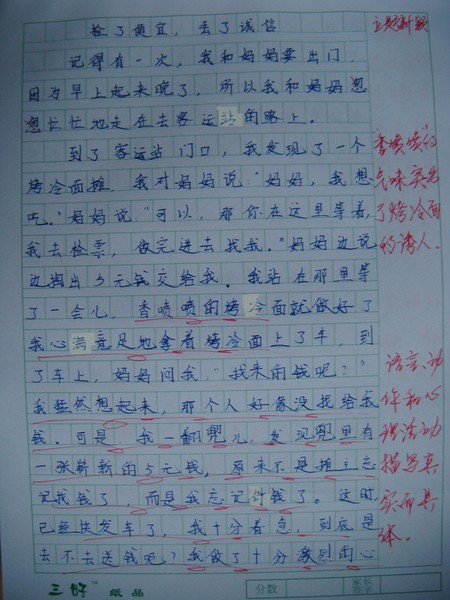 捡了便宜,丢了诚信
主题新颖
记得有一次,我和妈妈要出门,
因为早上起来晚了,所以我和妈妈匆
匆忙忙地走在去客运站的路上。
到了客运站门口,我发现了一个
烤冷面摊,我对妈妈说:“妈妈,我想
吃。”妈妈说:“可以,那你在这里等着,
我去检票,做完进去找我。”妈妈边说
边掏出5元钱交给我。我站在那里等
了一会儿,香喷喷的烤冷面就做好了
我心满意足地拿着烤冷面上了车,到
了车上,妈妈问我:“找来的钱呢?”
我猛然想起来,那个人好像没找给我
钱。可是,我一翻兜儿,发现兜里有
一张崭新的5元钱,原来不是摊主忘
记找钱了,而是我忘记付钱了。这时,
已经快发车了,我十分着急,到底是
去不去送钱呢?我做了十分激烈的心
香喷喷的
气味突出
了烤冷面
的诱人。
语言、动
作和心
理活动
描写真
实而具
体。
三好 纸品
分数
家长
签字